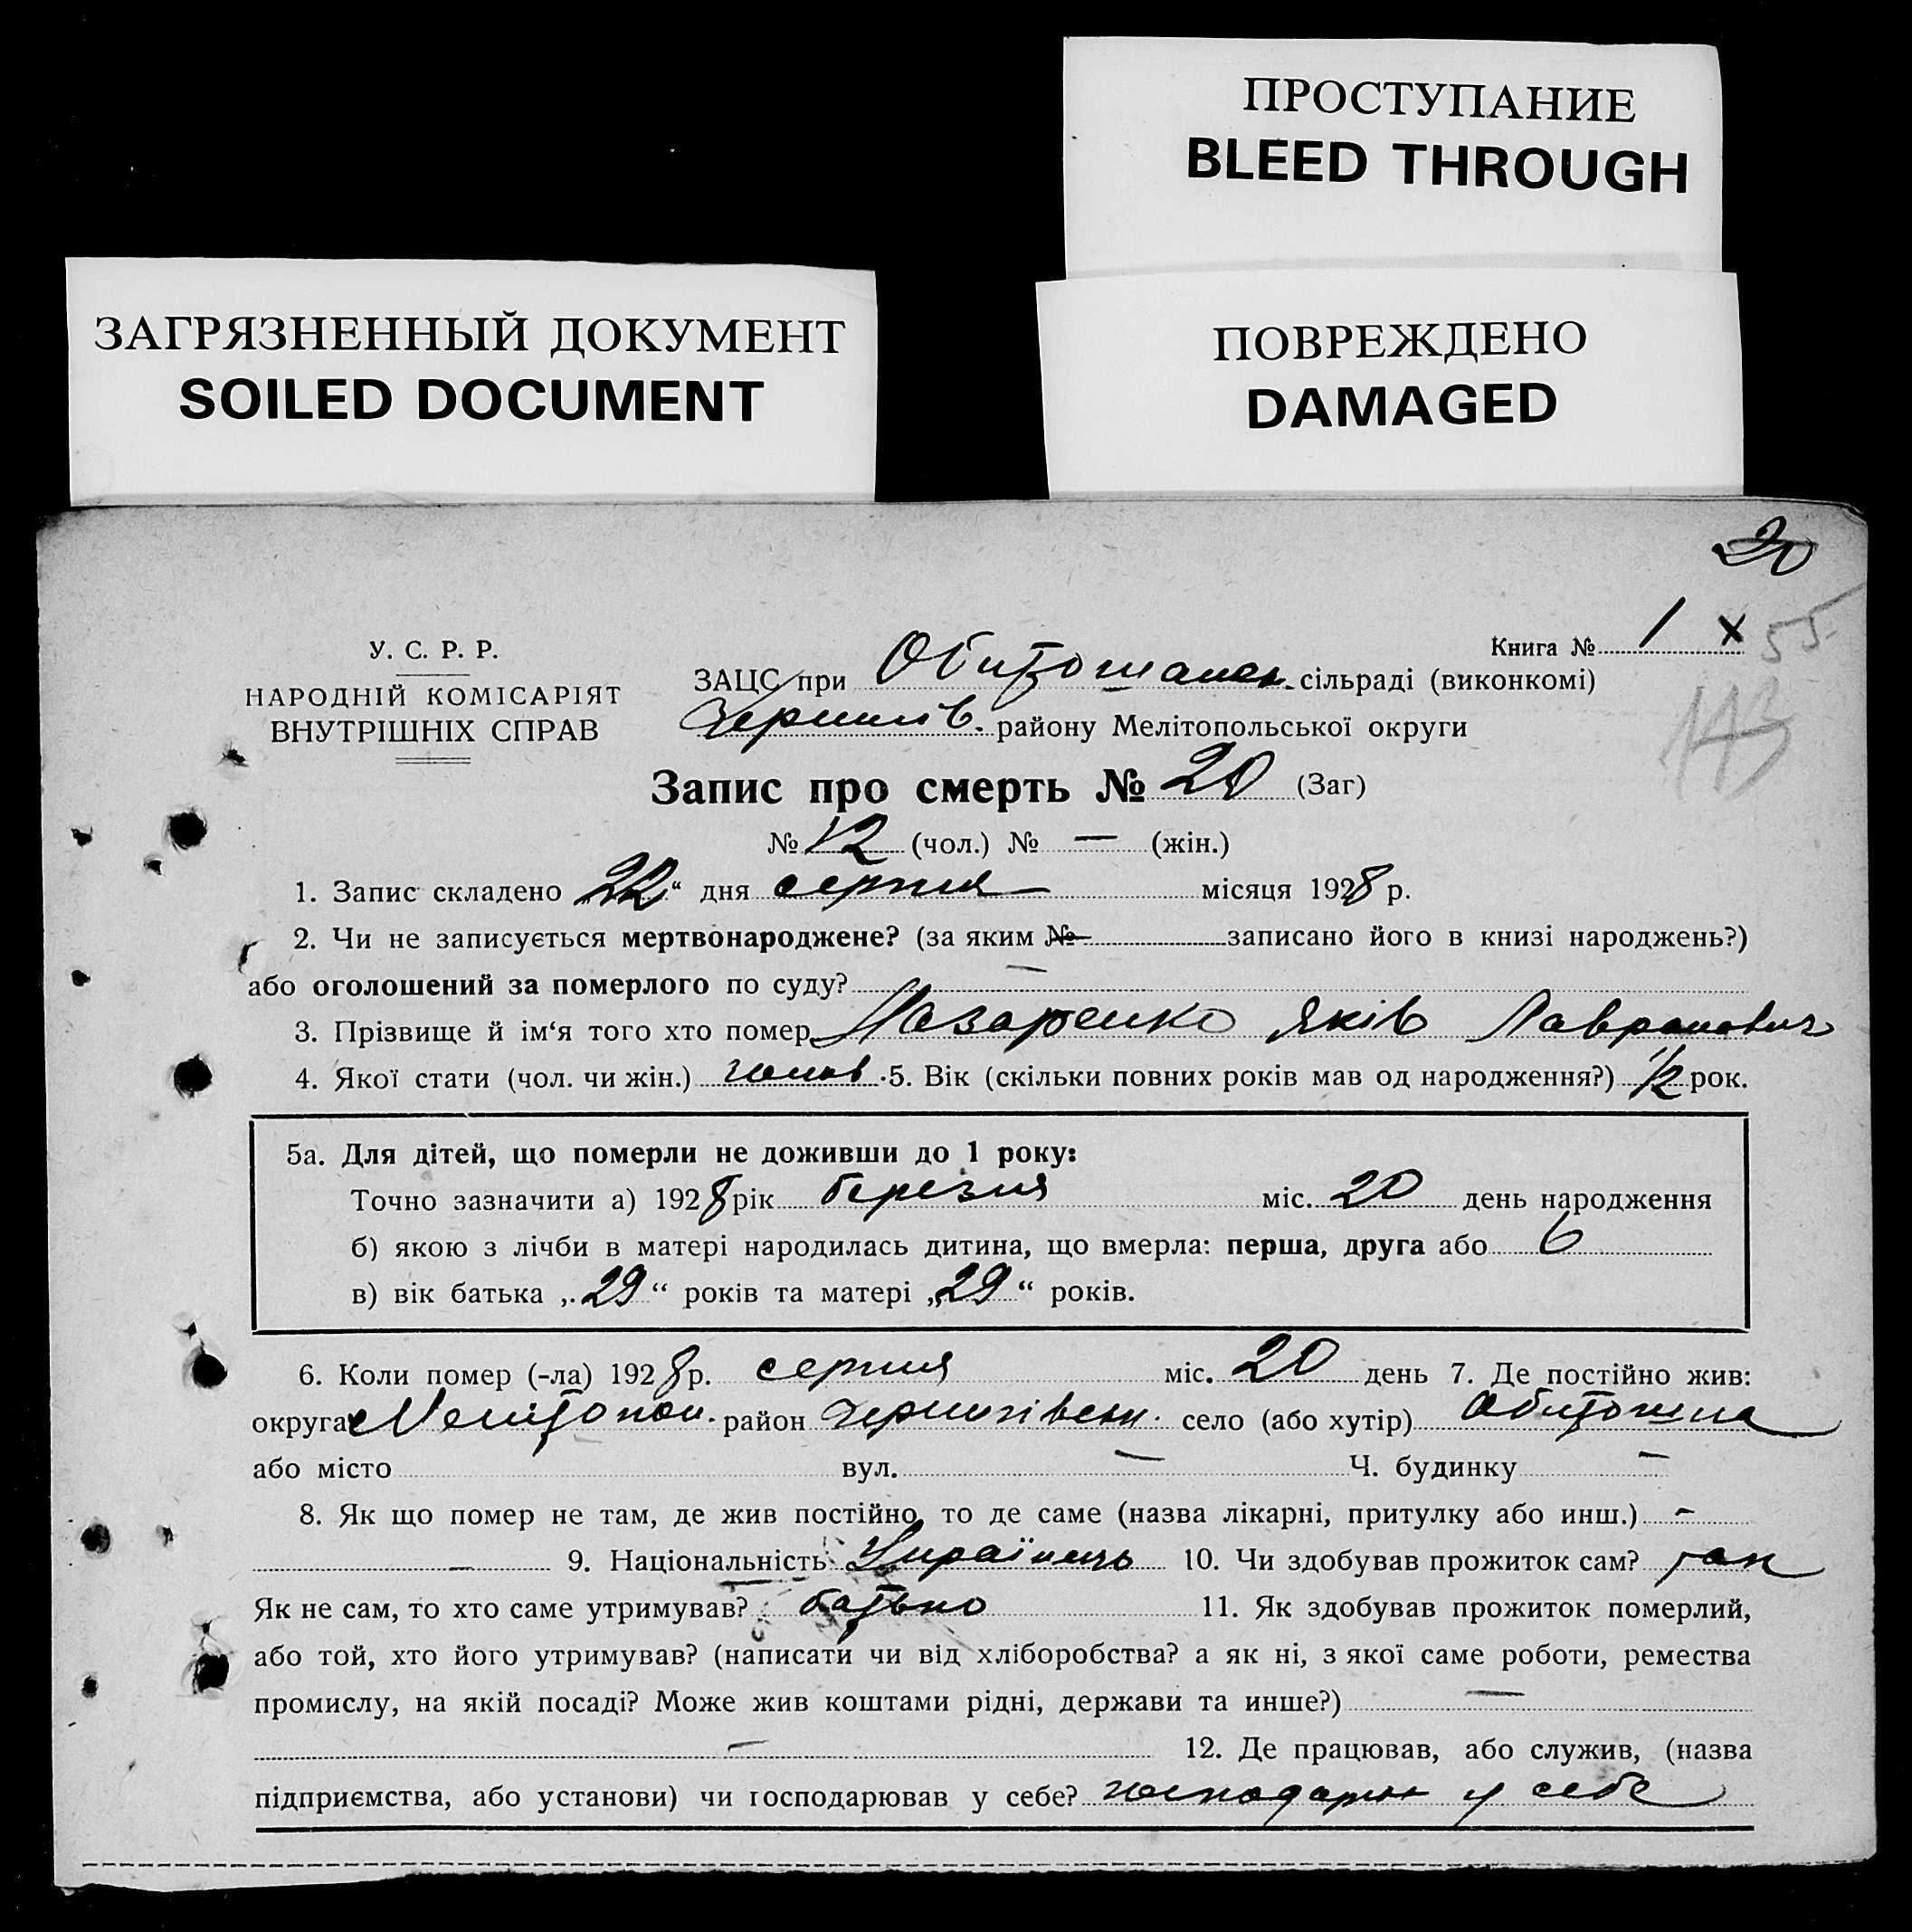 ПРОСТУПАНИЕ
BLEED THROUGH
ЗАГРЯЗНЕННЫЙ ДОКУМЕНТ
SOILED DOCUMENT
ПОВРЕЖДЕНО
DAMAGED
20
У. С. Р. Р.
НАРОДНІЙ КОМІСАРІЯТ
ВНУТРІШНІХ СПРАВ
Книга № 1 х 55
ЗАЦС при Обитошанск. сільраді (виконкомі)
143
Чернигів. району Мелітопольської округи
Запис про смерть № 20 (Заг)
№ 12 (чол.) № — (жін.)
1. Запис складено „22“ дня серпня місяця 1928 р.
2. Чи не записується мертвонароджене? (за яким № записано його в книзі народжень?)
або оголошений за померлого по суду? —
3. Прізвище й ім‘я того хто помер Назаренко Яків Лавранович
4. Якої стати (чол. чи жін.) чолов. 5. Вік (скільки повних років мав од народження?) 1/2 рок.
5а. Для дітей, що померли не доживши до 1 року:
Точно зазначити а) 1928 рік березня міс. 20 день народження
б) якою з лічби в матері народилась дитина, що вмерла: перша, друга або 6
в) вік батька „29“ років та матері „29“ років.
6. Коли помер (-ла) 1928 р. серпня міс. 20 день 7. Де постійно жив:
округа Мелітопол. район Чернигівськ. село (або хутір) Обитошна
або місто вул. — Ч. будинку —
8. Як що помер не там, де жив постійно, то де саме (назва лікарні, притулку або инш.) —
— 9. Національність Українець 10. Чи здобував прожиток сам? так
Як не сам, то хто саме утримував? батько 11. Як здобував прожиток померлий,
або той, хто його утримував? (написати чи від хліборобства? а як ні, з якої саме роботи, ремества
промислу, на якій посаді? Може жив коштами рідні, держави та инше?) —
— 12. Де працював, або служив, (назва
підприємства, або установи) чи господарював у себе? господарю у себе